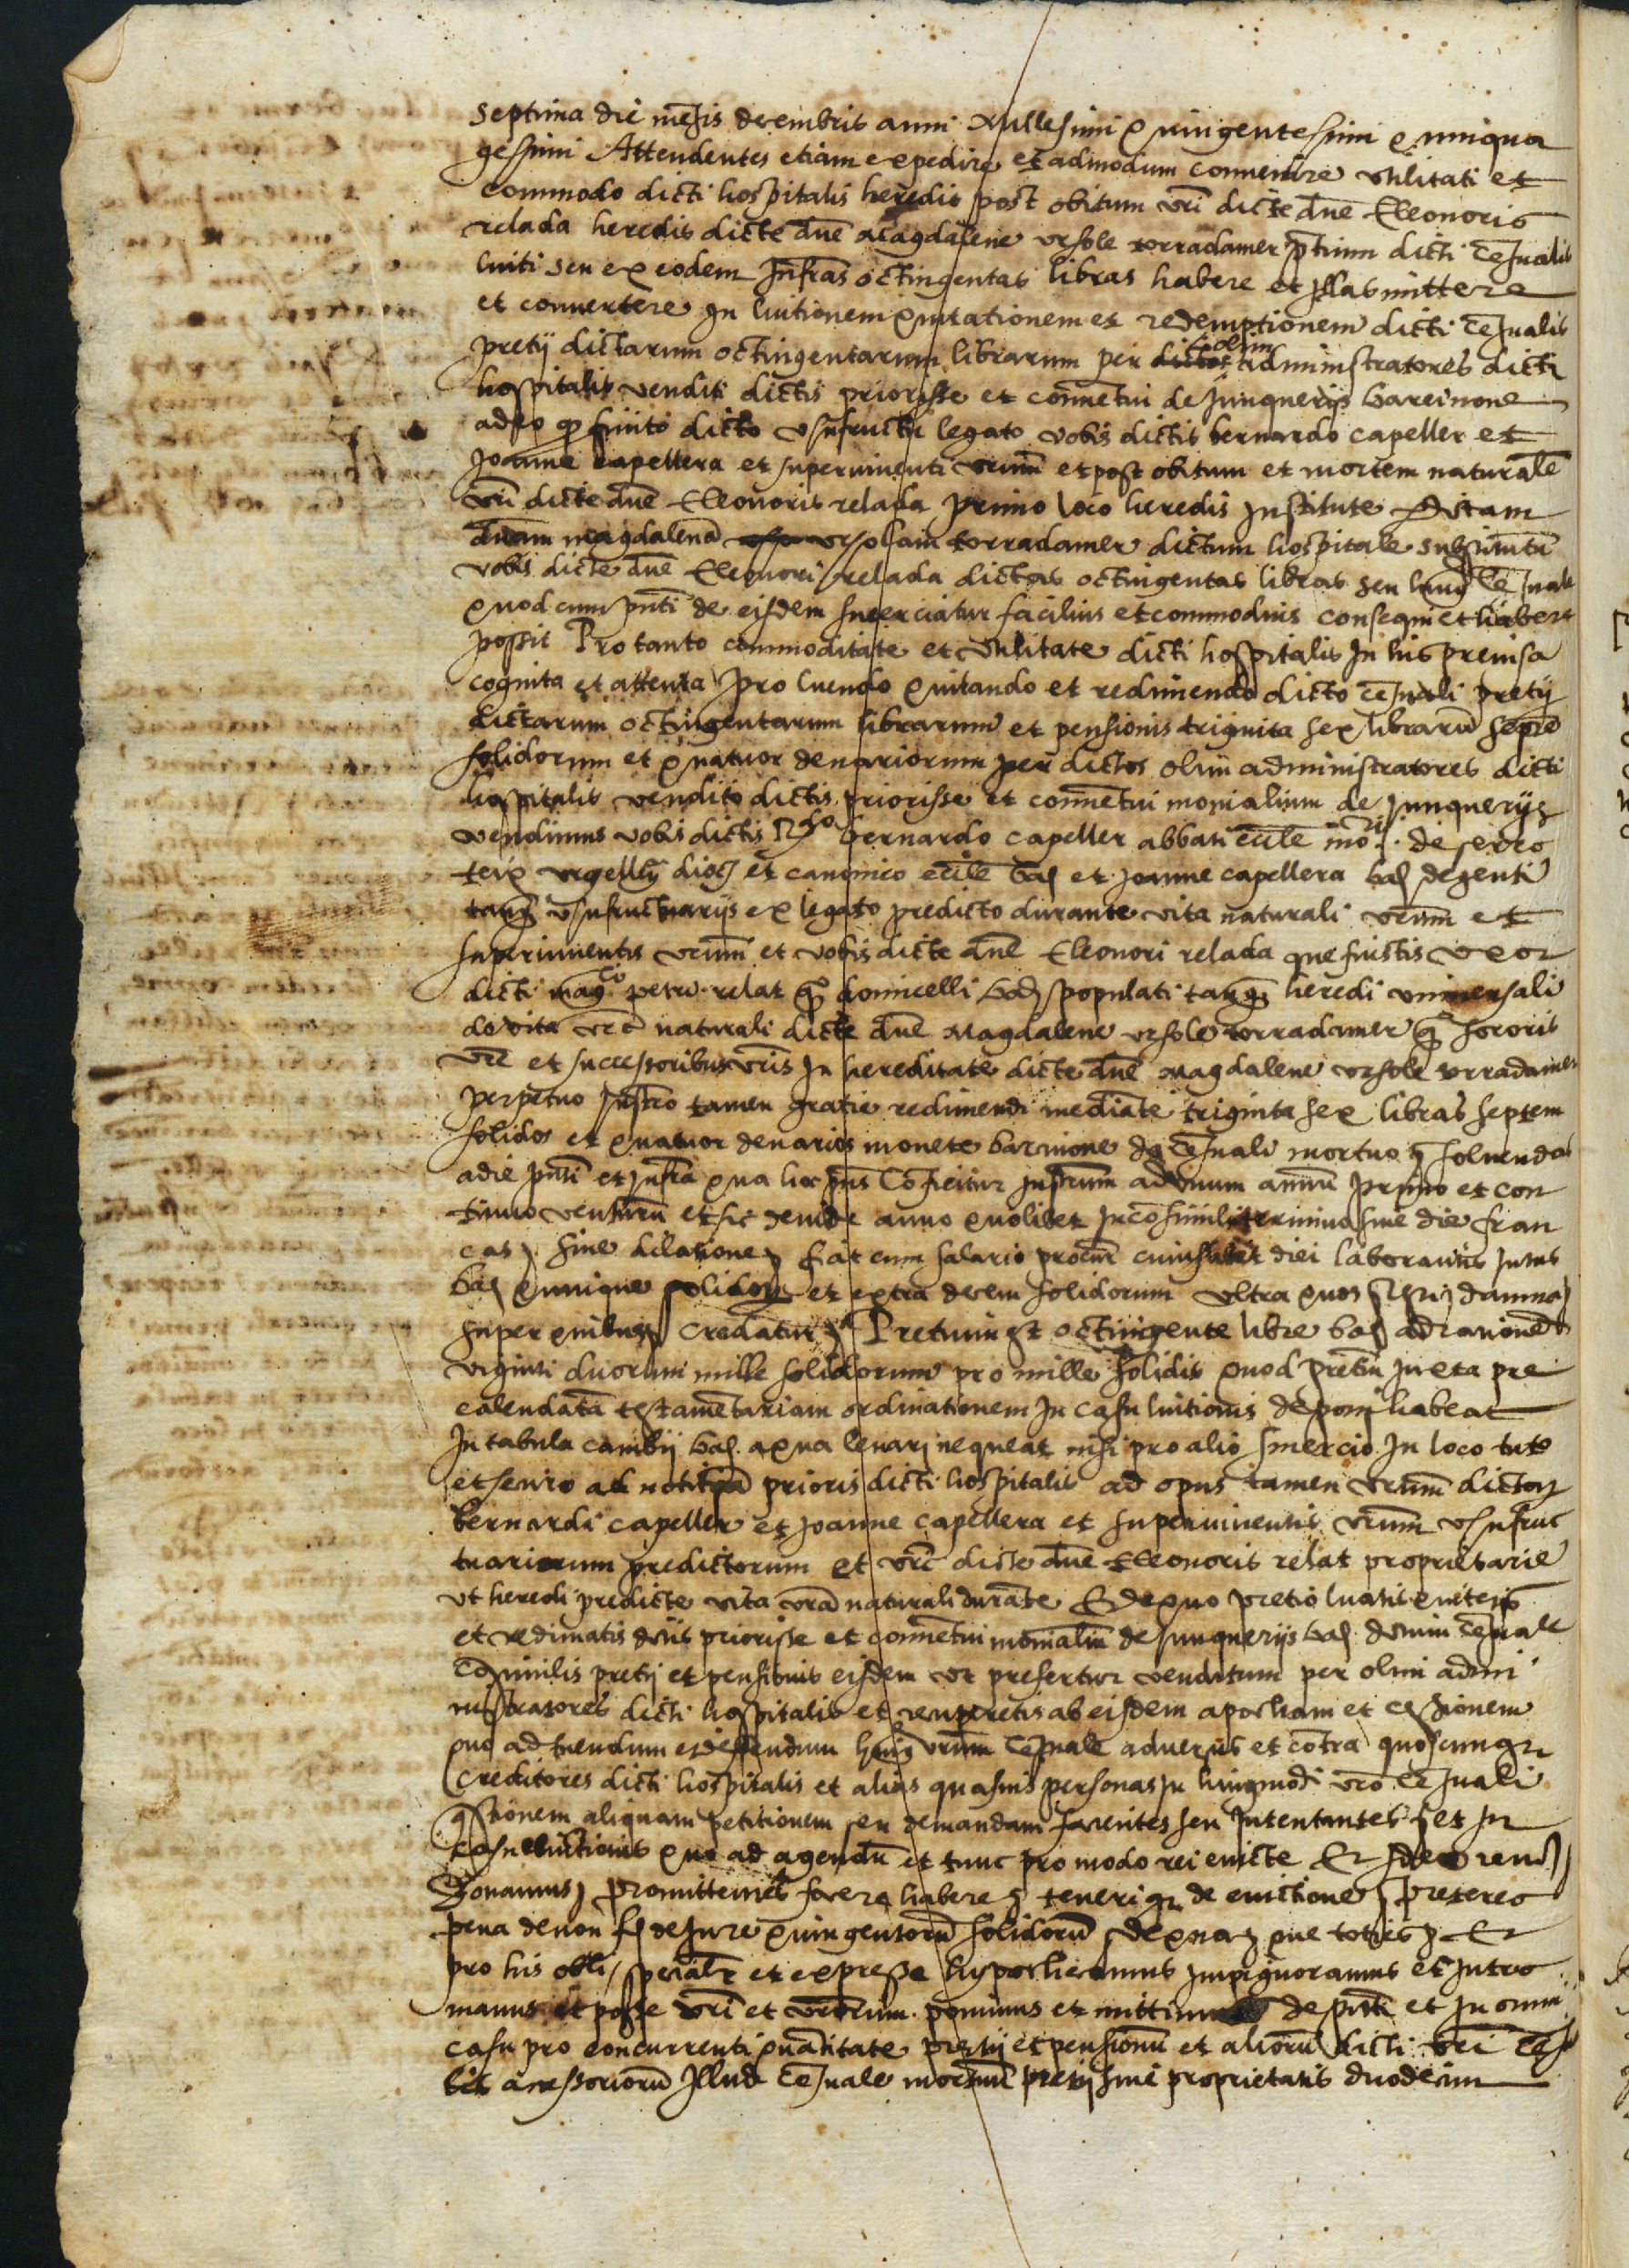 septima die mēsis decembris anni Millesimi quingentesimi quinqua
gessimi Attendentes etiam expedire et admodum convenire utilitati et
commodo dicti hospitalis heredis post obitum vr̄i dicte dn̄e Eleonoris
relada heredis dicte dn̄e Magdalene ursole torradamer p̄tium dicti cēsualis
luiti seu ex eodem Infras octingentas libras habere et Illas mittere
et convertere In luitionem quitationem et redemptionem dicti cēsualis
pretij dictarum octingentarum librarum per dictos olim administratores dicti
hospitalis venditi dictis priorisse et convētui de Junquerijs barcinone
adeo q finito dicto usufructu legato vobis dictis bernardo capeller et
Joanne capellera et superviventi vrūm et post obitum et mortem naturalē
vr̄i dicte dn̄e Eleonoris relada primo loco heredis Institute ditam
dn̄am magdalenā ursolam torradamer dictum hospitale
vobis dicte dn̄e Eleonori relada dictas octingentas libras seu huiꝰ cēsuale
quod cum pn̄ti de eisdem smerciatur facilius et commodius consequi et habere
possit Pro tanto commoditate et utilitate dicti hospitalis In his previsa
cognita et attenta pro luendo quitando et redimendo dicto cēsuali pretij
dictarum octingentarum librarum et pensionis triginta sex librarū septē
solidorum et quatuor denariorum per dictos olim administratores dicti
hospitalis vendito dictis priorisse et convētui monialium de Junquerijs
vendimus vobis dictis R.do bernardo capeller abbati ecclē mo.rij de
urgelleñ dioc et canonico ecclē bar et Joanne capellera bar degenti
tanq usufructuarijs ex legato predicto durante vita naturali vrūm et
superviventis vrūm et vobis dicte dn̄e Eleonori relada que fuistis uxor
dicti mag.ci petri relat q domicelli bar populati tanq heredi universali
de vita vr̄e naturali dicte dn̄e Magdalene ursole torradamer q sororis
vr̄e et successoribus vr̄is In hereditate dicte dn̄e Magdalene ursole torradamer
perpetuo Instr̄o tamen gratie redimendi mediāte triginta sex libras septem
solidos et quatuor denarios monete barcinone de cēsuali mortuo solvendas
a die pn̄ti et Infra qua hoc pn̄s cōficitur Instrum̄ ad unum annum primo et con
tinuo venturū et sic deinde anno quolibet In cōsimili termino sive die fran
cas sine dilatione fiat cum salario procurī cuiuslibet diei laborantis Intus
bar quinque solidorum et extra decem solidorum ultra quos damna
super quibus credatur Pretium est octingente libre bar ad rationē
viginti duorum mille solidorum pro mille solidis quod pretiū Juxta pre
calendatā testamētariam ordinationem In casu luitionis deponi habeat
In tabula cambij bar a qua levari nequeat nisi pro alio smercio In loco tuto
et securo ad notitiam prioris dicti hospitalis ad opus tamen vrūm dictor
bernardi capeller et Joanne capellera et superviventis vrūm usufruc
tuariorum predictorum et vr̄e dicte dn̄e Eleonoris relat proprietarie
ut heredi predicte vita vr̄a naturali durāte Et de quo pretio luatis quitetis
et redimatis dictis priorisse et convētui monialiū de Junquerijs bar cēsuale
cōsimilis pretij et pensionis eisdem ut prefertur venditum per olim admi
nistratores dicti hospitalis et recuperetis ab eisdem apocham et cessionem
quo ad tuendum et deffendum huiꝰ vrūm cēsuale adversus et cōtra quoscunqz
creditores dicti hospitalis et alias quasvis personas In huiꝰmodi vr̄o cēsuali
questionem aliquam petitionem seu demandam facientes seu Intentantes et In
casu evictionis quo ad agendū et tunc pro modo rei evicte Et
donamus promittentes facere habere teneriqz de evictione preterea
pena de non de Jure quingentorū solidorū de qua que toties Et
pro his obli specialr̄ et expresse hypothecamus Impignoramus et Intus
manus et posse vr̄i et vr̄orum ponimus et mittimus de pn̄ti et In omni
casu pro concurrenti quātitate pretij et pensionū et aliorū dicti vr̄i cēsu
lis acessoriorū Illud cēsuale mortuū pretij sive proprietatis duodecim